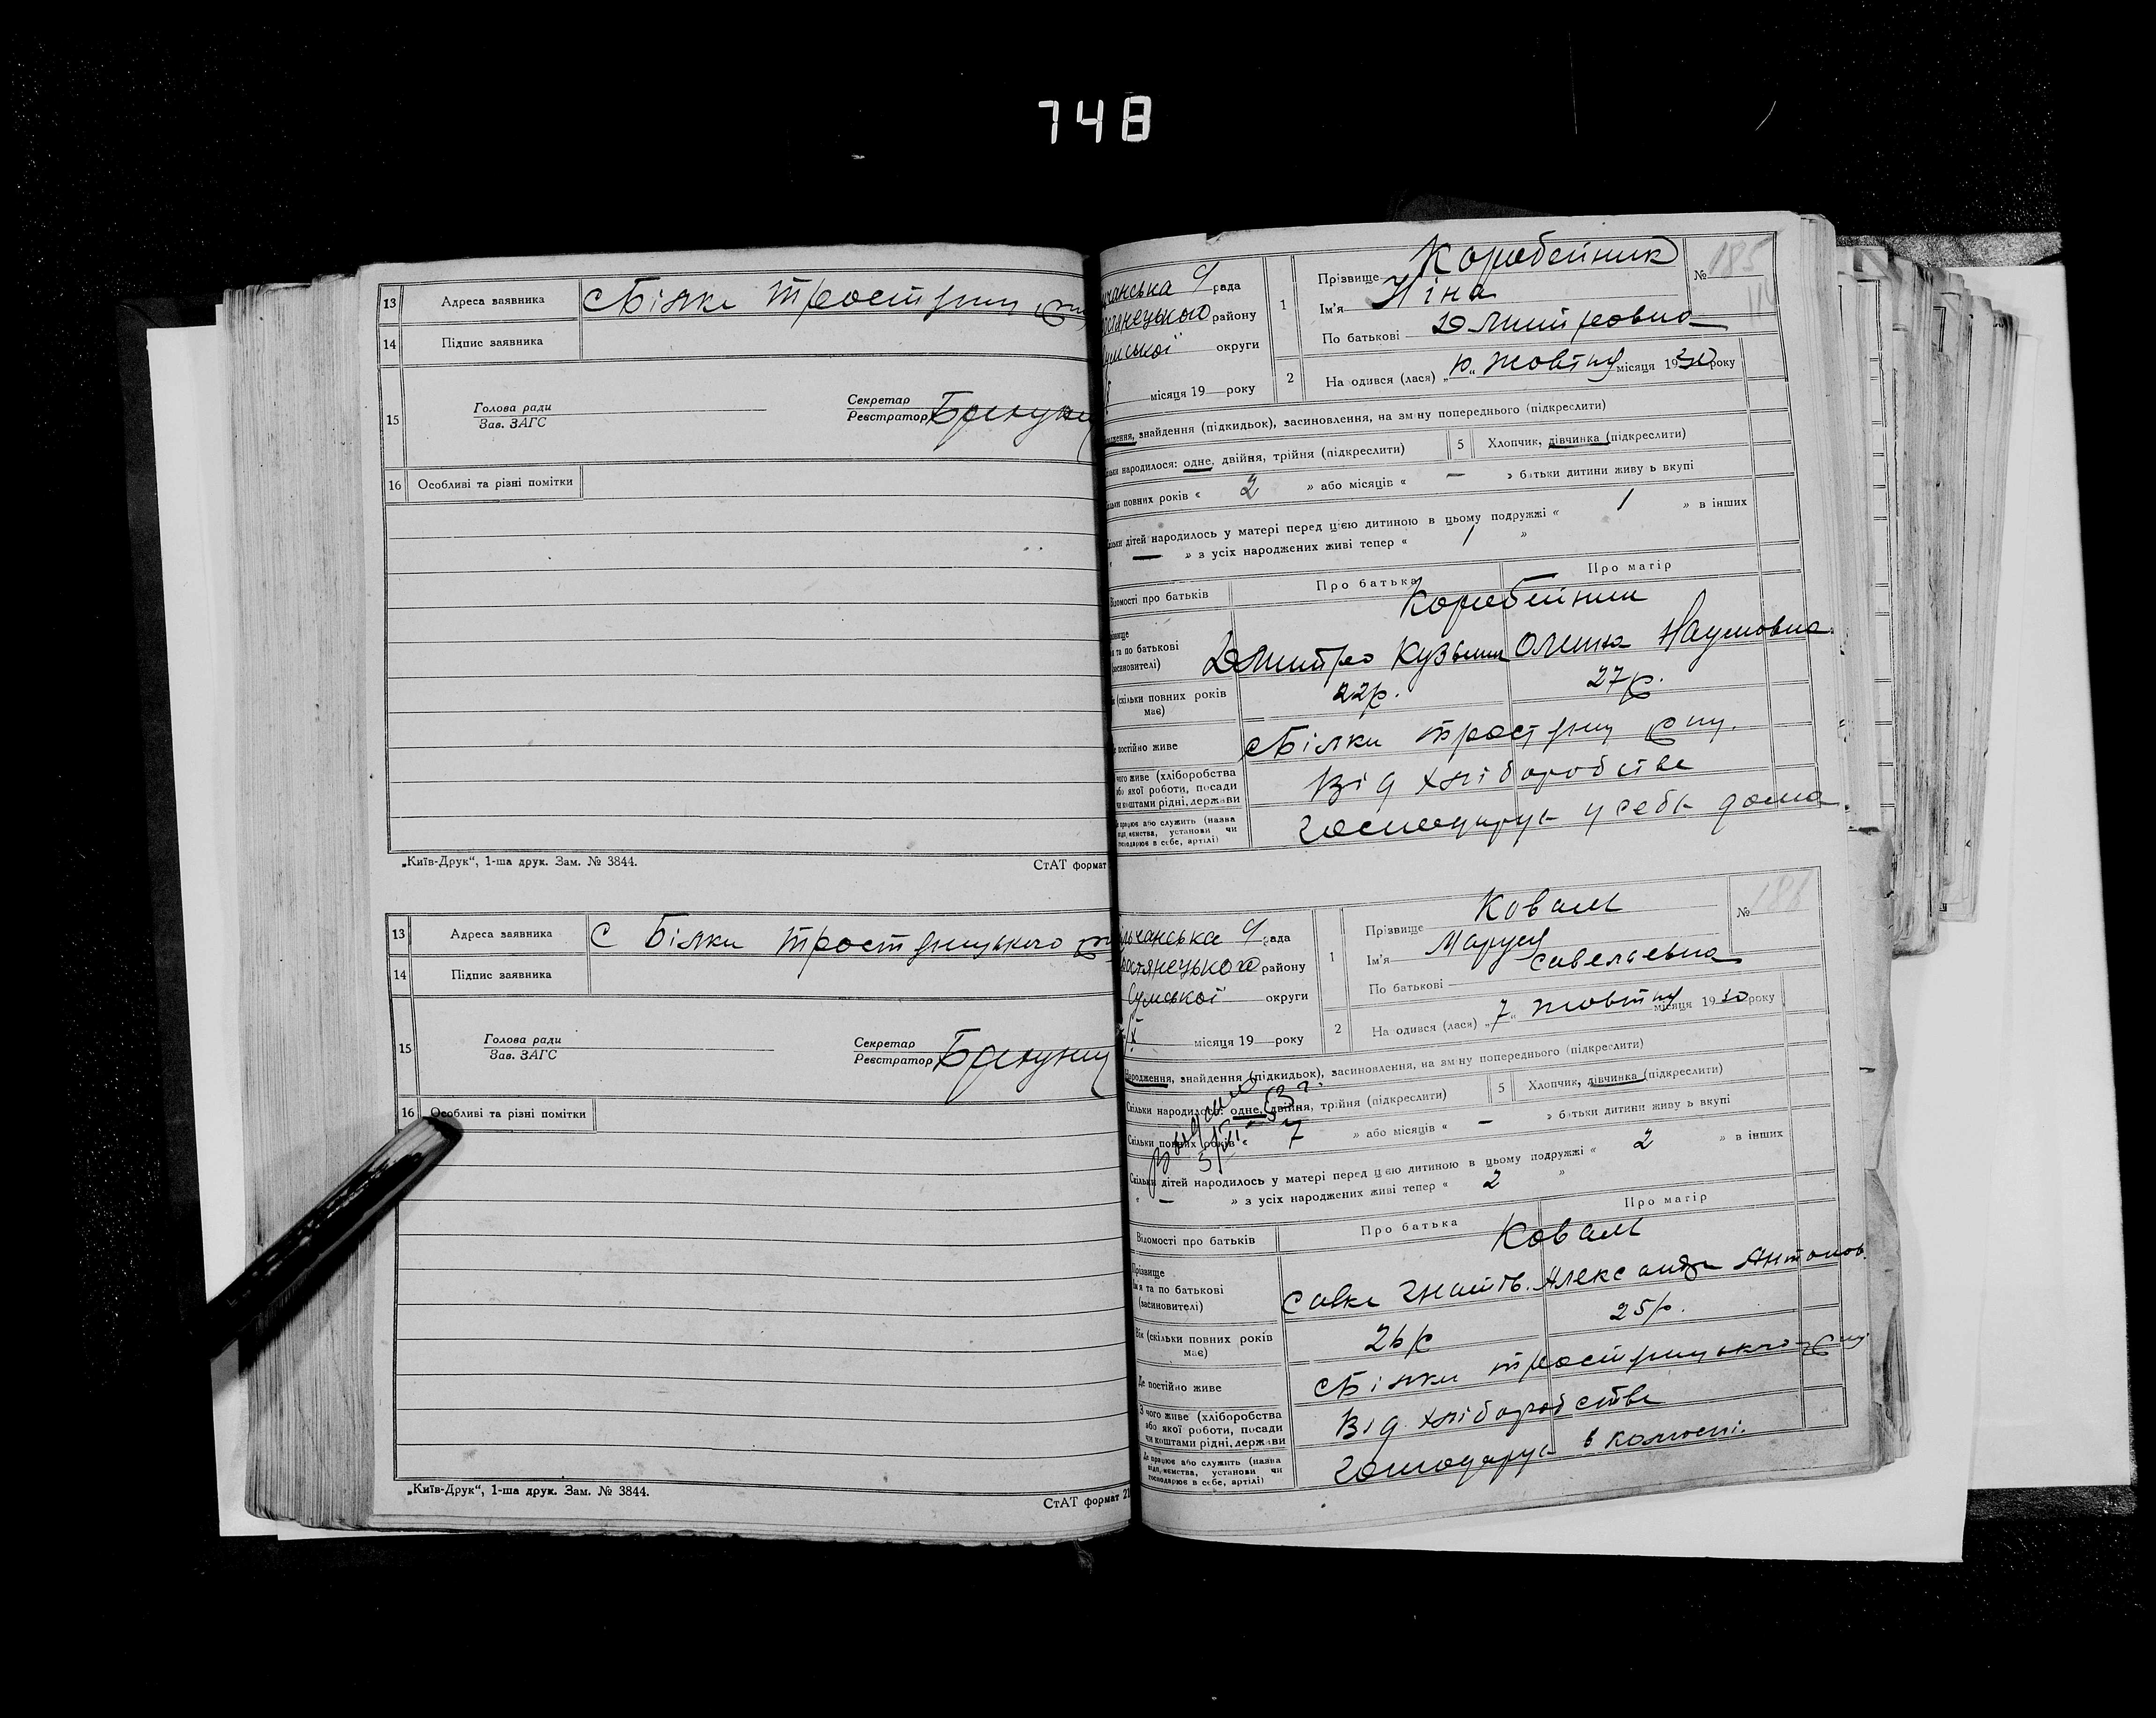 748
13 Адреса заявника сБілки Тростянц
14 Підпис заявника
15 Голова ради Зав. ЗАГС Секретар Реєстратор
16 Особливі та різні помітки
„Київ-Друк“, 1-ша друк. Зам. № 3844. СтАТ формат
13 Адреса заявника С Білки Тростянецького
14 Підпис заявника
15 Голова ради Зав. ЗАГС Секретар Реєстратор
16 Особливі та різні помітки
„Київ-Друк“, 1-ша друк. Зам. № 3844. СтАТ формат 21
чанська с/рада
остянецького району
умської округи
місяця 19 року
1 Прізвище Коробейник № 185
Ім'я Ніна
По батькові Дмитровна
2 На одився (лася) „10“ жовтня місяця 1930 року
дження, знайдення (підкидьок), засиновлення, на зміну попереднього (підкреслити)
ільки народилося: одне, двійня, трійня (підкреслити) 5 Хлопчик, дівчинка (підкреслити)
ільки повних років « 2 » або місяців « — » батьки дитини живу ь вкупі
ільки дітей народилось у матері перед цією дитиною в цьому подружжі « 1 » в інших
« — » з усіх народжених живі тепер « 1 »
Відомості про батьків Про батька Про матір
різвище Коробейник
я та по батькові (засиновителі) Дмитро Кузьмич Наумовна
к (скільки повних років має) 22р. 27р.
е постійно живе сБілки Трост
чого живе (хліборобства або якої роботи, посади чи коштами рідні, держави Від хліборобства
е працює або служить (назва підприємства, установи чи господарює в себе, артілі) господарує у себе дома
льчанська с/рада
ростянецького району
Сумської округи
X місяця 19 року
1 Прізвище Коваль № 186
Ім'я Маруся
По батькові Савельевна
2 На одився (лася) „7“ жовтня місяця 1930 року
Народження, знайдення (підкидьок), засиновлення, на зміну попереднього (підкреслити)
Скільки народилося: одне, двійня, трійня (підкреслити) 5 Хлопчик, дівчинка (підкреслити)
Скільки повних років « 7 » або місяців « — » батьки дитини живу ь вкупі
Скільки дітей народилось у матері перед цією дитиною в цьому подружжі « 2 » в інших
« — » з усіх народжених живі тепер « 2 »
Відомості про батьків Про батька Про матір
Прізвище Коваль
Ім'я та по батькові (засиновителі) Савка Гнатов. Александра Антонов.
Вік (скільки повних років має) 26р 25р.
Де постійно живе сБілки Тростянецького
З чого живе (хліборобства або якої роботи, посади чи коштами рідні, держави Від хліборобства
Де працює або служить (назва підприємства, установи чи господарює в себе, артілі) Господарує в колгоспі.